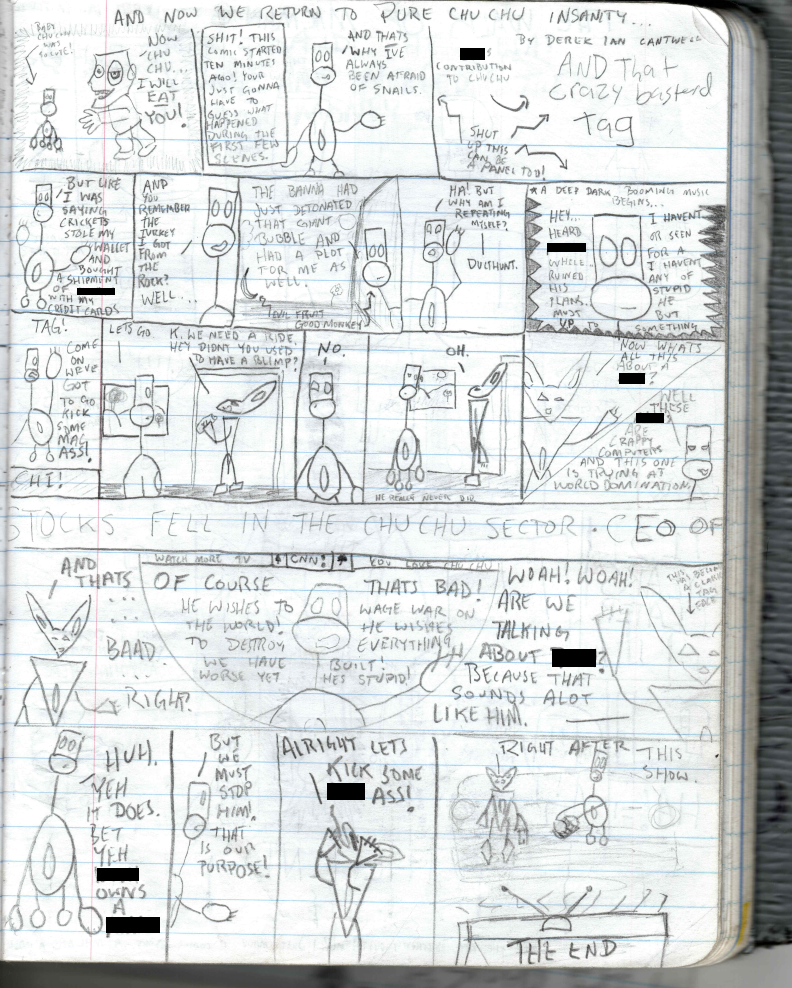 AND NOW WE RETURN TO PURE CHU CHU INSANITY...
BY DEREK IAN CANTWELL
BABY
CHUCHU
WAS
SO CUTE!
NOW
CHU
CHU...
I WILL
EAT
YOU!
SHIT! THIS
COMIC STARTED
TEN MINUTES
AGO! YOUR
JUST GONNA
HAVE TO
GUESS WHAT
HAPPENED
DURING THE
FIRST FEW
SCENES.
AND THATS
WHY IVE
ALWAYS
BEEN AFRAID
OF SNAILS.
S
CONTRIBUTION
TO CHUCHU
AND That
crazy bastard
tag
SHUT
UP THIS
CAN BE
A PANEL TOO!
BUT LIKE
I WAS
SAYING
CRICKETS
STOLE MY
WALLET
AND
BOUGHT
A SHIPMENT
OF
WITH MY
CREDIT CARDS
AND
YOU
REMEMBER
THE
TURKEY
I GOT
FROM
THE
ROCK?
WELL...
THE BANNA HAD
JUST DETONATED
THAT GIANT
BUBBLE AND
HAD A PLOT
FOR ME AS
WELL.
EVIL FRUIT
GOOD MONKEY
HA! BUT
WHY AM I
REPEATING
MYSELF?
DUCTHUNT.
* A DEEP DARK BOOMING MUSIC
BEGINS...
HEY... I HAVENT
HEARD OR SEEN
FOR A
WHILE... I HAVENT
RUINED ANY OF
HIS STUPID
PLANS. HE
MUST BUT
UP TO SOMETHING
TAG!
COME
ON
WEVE
GOT
TO GO
KICK
SOME
MAC
ASS!
CHI!
LETS GO
K. WE NEED A RIDE,
HEY DIDNT YOU USED
TO HAVE A BLIMP?
NO.
OH.
HE REALLY NEVER DID.
NOW WHATS
ALL THIS
ABOUT A
?
WELL
THESE
ARE
CRAPPY
COMPUTERS
AND THIS ONE
IS TRYING AT
WORLD DOMINATION.
STOCKS FELL IN THE CHUCHU SECTOR · CEO OF
AND
THATS
....
BAAD
...
RIGHT.
WATCH MORE TV
CNN?
YOU LOVE CHU CHU
OF COURSE THATS BAD!
HE WISHES TO WAGE WAR ON
THE WORLD! HE WISHES
TO DESTROY EVERYTHING
WE HAVE BUILT!
WORSE YET HES STUPID!
WOAH! WOAH!
ARE WE
TALKING
ABOUT ?
BECAUSE THAT
SOUNDS ALOT
LIKE HIM.
HUH.
YEH
IT DOES.
BET
YEH
OWNS
A
BUT
WE
MUST
STOP
HIM!
THAT
IS OUR
PURPOSE!
ALRIGHT LETS
KICK SOME
ASS!
RIGHT AFTER THIS
SHOW.
THE END